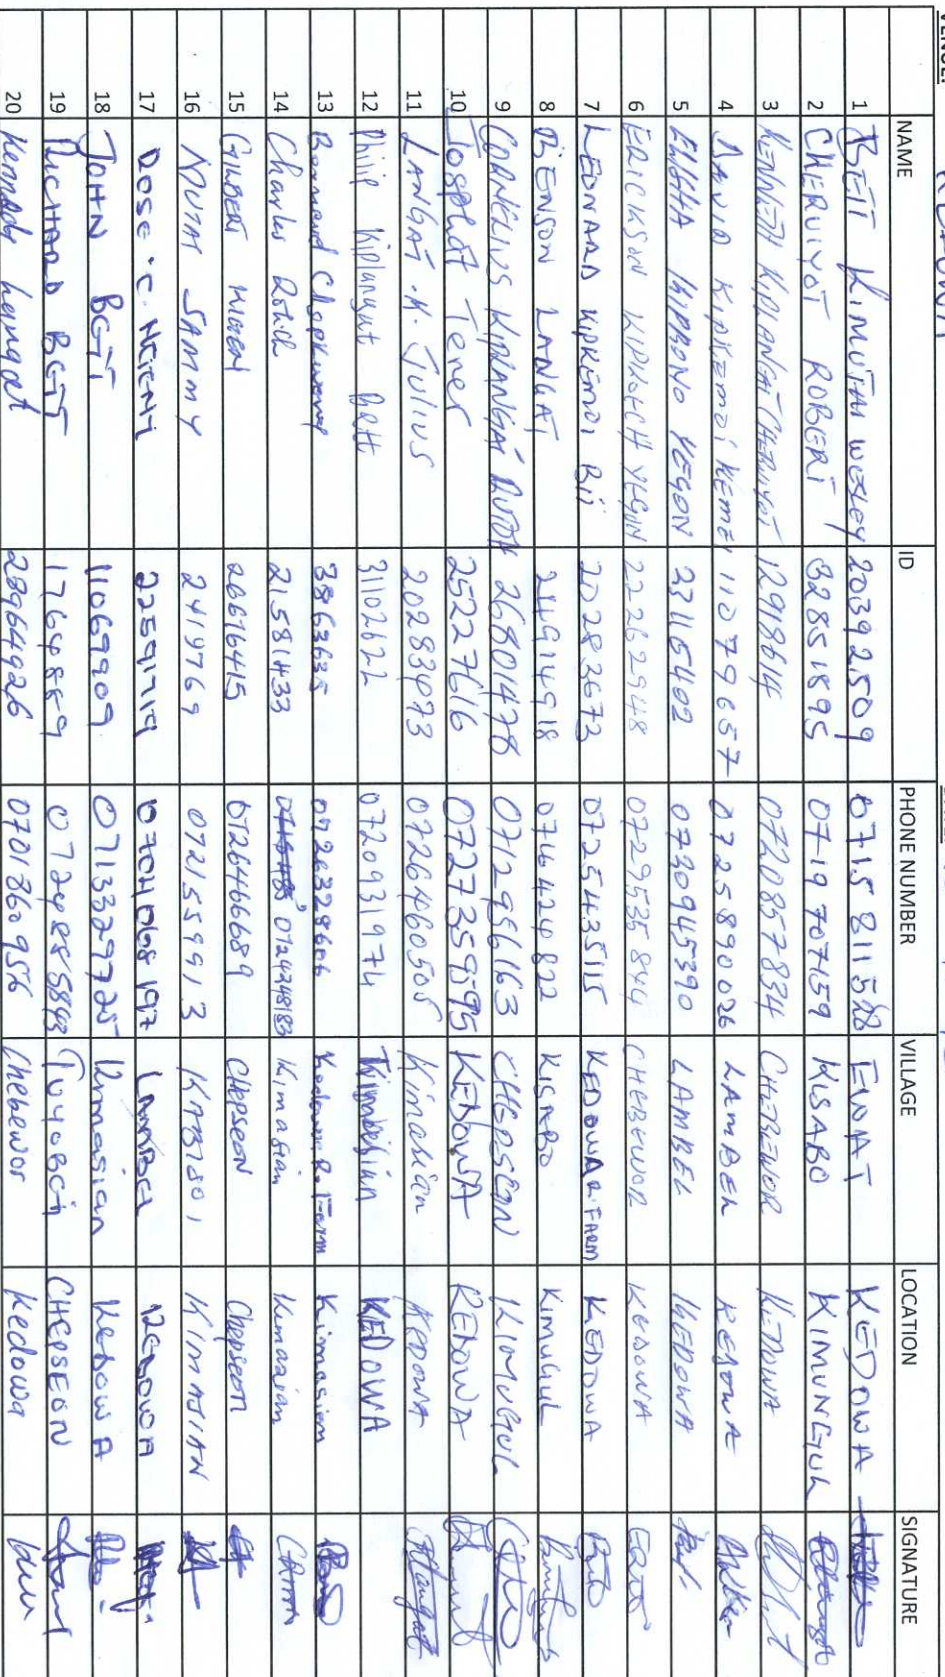 VENUE: KEDOWA
NAME ID PHONE NUMBER VILLAGE LOCATION SIGNATURE
1 BETT KIMUTAI WESLEY 20392509 0715811528 EWAT KEDOWA
2 CHERUIYOT ROBERT 32851895 0719707159 KISABO KIMUNGUL
3 KENNETH KIPLANGAT CHERUIYOT 12918614 0720857834 CHEBEWOR KEDOWA
4 DAVID KIPKEMOI KEMEI 11079657 0725890026 LAMBEL KEDOWA
5 ELISHA KIPRONO YEGON 23116402 0730945390 LAMBEL KEDOWA
6 ERICKSON KIPKOECH YEGON 22262948 0729535844 CHEBEWOR KEDOWA
7 LEONARD KIPKEMOI BII 20283673 0725435115 KEDOWA R. FARM KEDOWA
8 BIENSON LANGAT 24914918 0716424822 KISABO KIMUGUL
9 CORNELIUS KIPLANGAT RUTO 26801478 0712956163 CHEPSEON KIOMUGUL
10 Josphat Terer 25227616 0727359595 KEDOWA KEDOWA
11 LANGAT .K. JULIUS 20283973 0726460505 Kimasian KEDOWA
12 Philip Kiplangat Bett 31102622 0720931974 KEDOWA
13 Bernard Chepkwony 3863635 0726328606 Kedowa R. Farm Kimasian
14 Charles Rotich 21581433 0724248183 Kimasian Kimasian
15 GILBERT KIGEN 26676415 0726466689 CHEPSEON Chepseon
16 MUTAI SAMMY 2419769 0721559913 KABISOI KIMASIAN
17 22591719 0704068197 LAMBEL KEDOWA
18 JOHN BETT 11069909 0713329725 Kimasian KEDOWA
19 RICHARD BETT 17644889 0724885843 TUYOBEI CHEPSEON
20 Kennedy Langat 28964926 0701860956 Chebewor Kedowa